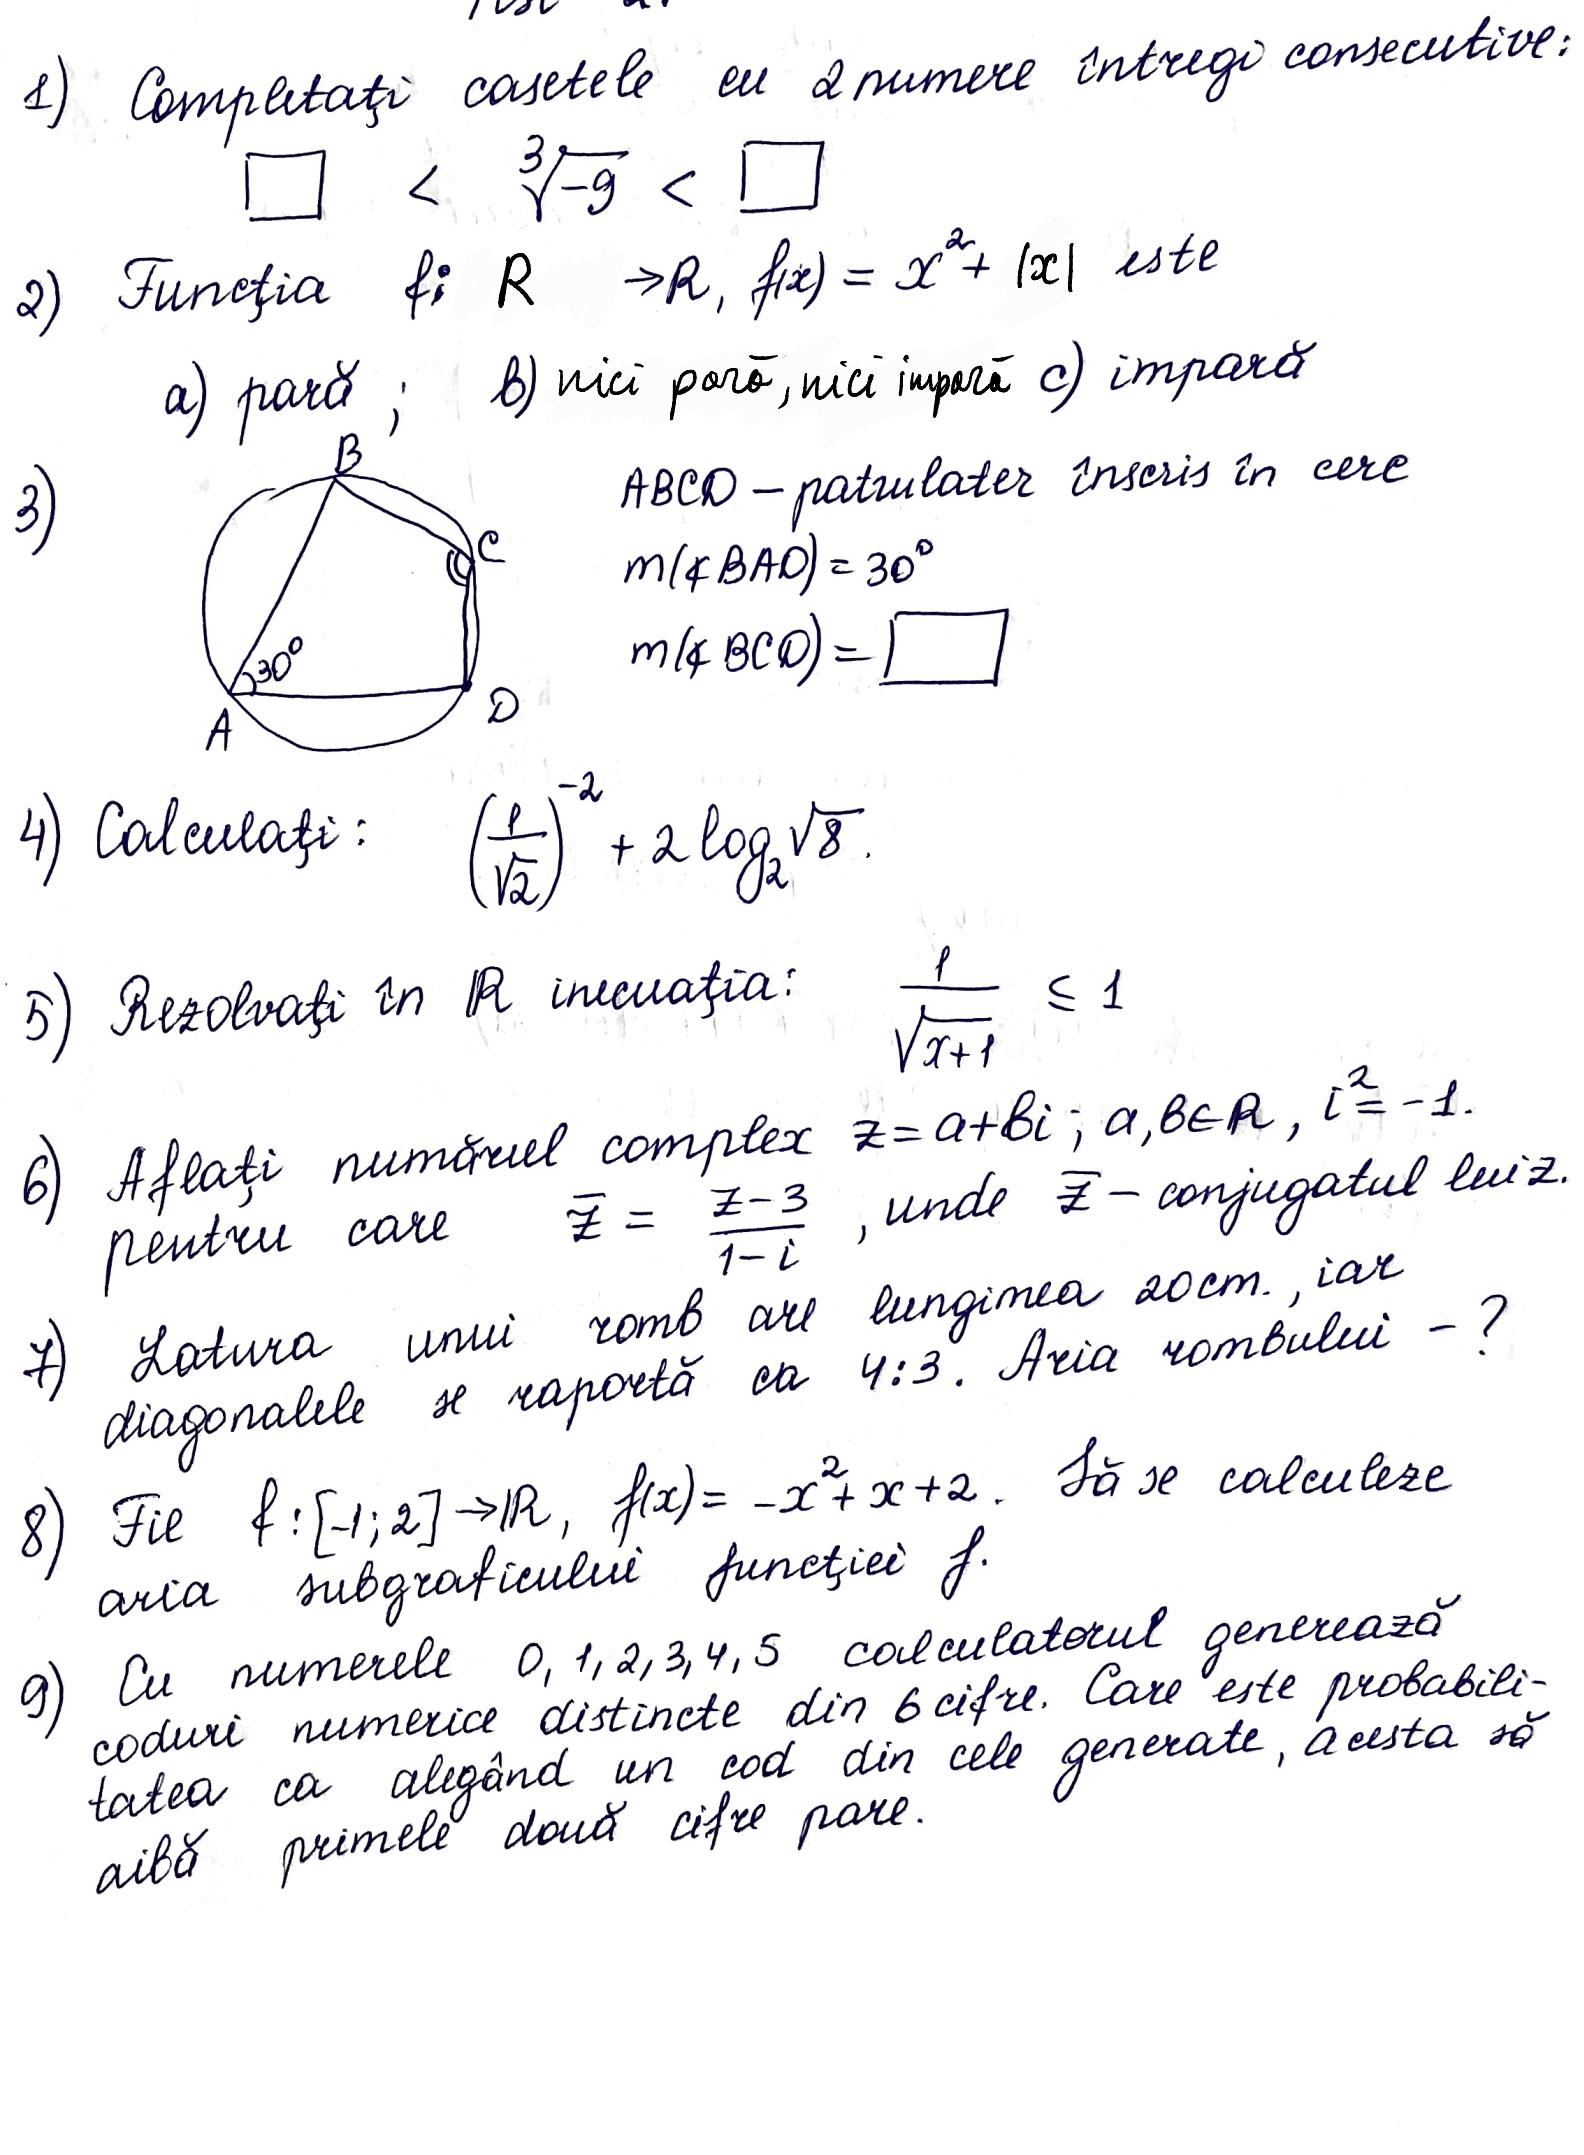 1) Completați casetele cu 2 numere întregi consecutive:
□ < ∛-9 < □
2) Funcția f: R → R, f(x) = x² + |x| este
a) pară; b) nici pară, nici impară c) impară
3) ABCD – patrulater înscris în cerc
m(∢BAD) = 30°
m(∢BCD) = □
B
C
30°
A
D
4) Calculați: (1/√2)⁻² + 2 log₂ √8.
5) Rezolvați în ℝ inecuația: 1/√(x+1) ≤ 1
6) Aflați numărul complex z = a+bi; a, b ∈ ℝ, i² = -1.
pentru care z̄ = (z-3)/(1-i), unde z̄ – conjugatul lui z.
7) Latura unui romb are lungimea 20cm., iar
diagonalele se raportă ca 4:3. Aria rombului – ?
8) Fie f: [-1; 2] → ℝ, f(x) = -x² + x + 2. Să se calculeze
aria subgraficului funcției f.
9) Cu numerele 0, 1, 2, 3, 4, 5 calculatorul generează
coduri numerice distincte din 6 cifre. Care este probabili-
tatea ca alegând un cod din cele generate, acesta să
aibă primele două cifre pare.